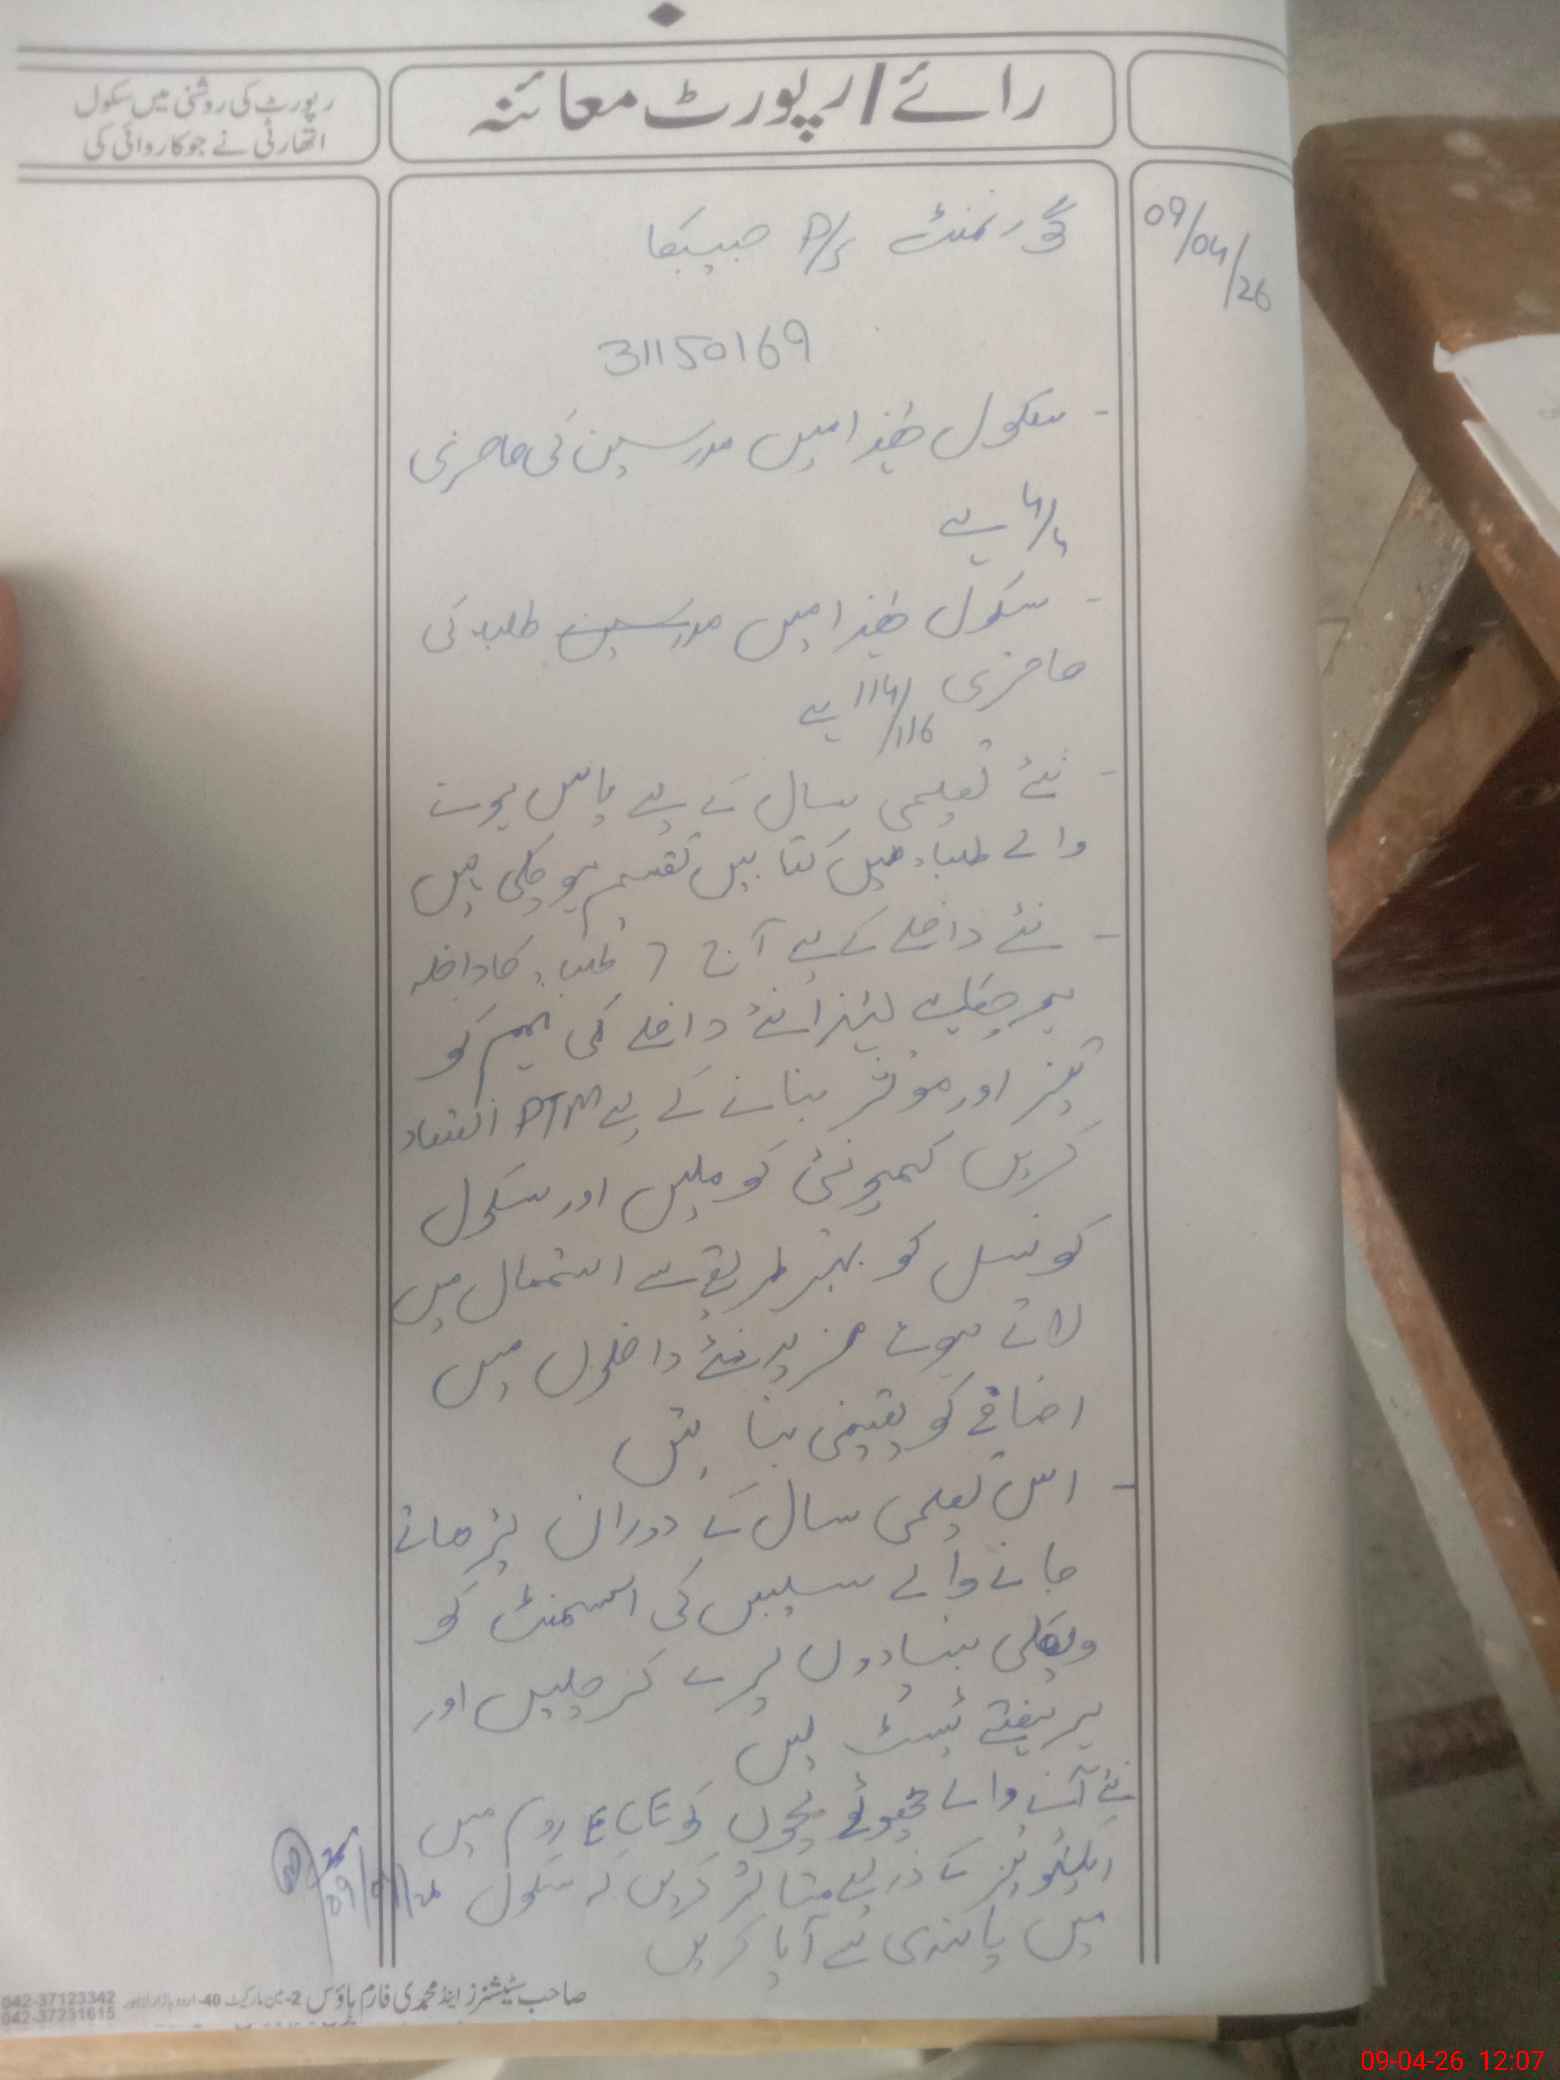 رائے/رپورٹ معائنہ
رپورٹ کی روشنی میں سکول
اتھارٹی نے جو کاروائی کی
09/04/26
گورنمنٹ P/S
31150169
- سکول ھٰذا میں مدرسین کی حاضری
4/4 ہے
- سکول ھٰذا میں مدرسین طلبہ کی
حاضری 114/116 ہے
- نئے تعلیمی سال کے لیے پاس ہونے
والے طلباء میں کتابیں تقسیم ہو چکی ہیں
- نئے داخلے کے لیے آج 7 طلباء کا داخلہ
ہو چکا ہے لہٰذا نئے داخلے کی مہم کو
تیز اور موثر بنانے کے لیے PTM انعقاد
کریں کمیونٹی کو ملیں اور سکول
کونسل کو بہتر طریقے سے استعمال میں
لاتے ہوئے مزید نئے داخلوں میں
اضافے کو یقینی بنائیں
- اس تعلیمی سال کے دوران پڑھائے
جانے والے سلیبس کی اسسمنٹ کو
ویکلی بنیادوں پر لے کر چلیں اور
ہر ہفتے ٹیسٹ لیں
نئے آنے والے چھوٹے بچوں کو ECE روم میں
ایکٹیوٹیز کے ذریعے متاثر کریں کہ سکول
میں پابندی سے آیا کریں
09/04/26
صاحب سٹیشنرز اینڈ محمدی فارم ہاؤس 2-مین مارکیٹ 40-اردو بازار لاہور
042-37123342
042-37231615
09-04-26 12:07